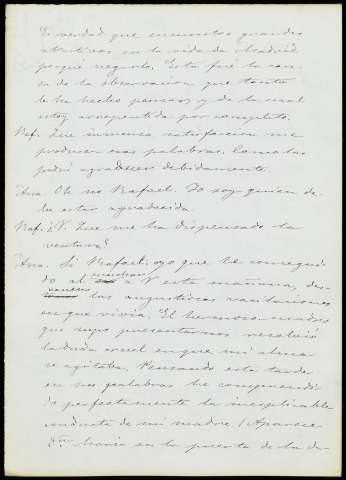 Es verdad que encuentro grandes
atractivos en la vida de Madrid
porqué negarlo. Esta fué la cau-
sa de la observacion que tanto
le ha hecho pensar, y de la cual
estoy arrepentida por completo.
Raf. Que inmensa satisfaccion me
producen esas palabras. Como las
podré agradecer debidamente.
Ana. Oh no Rafael. Yo soy quien de-
be estar agradecida
Raf. ¿V. que me ha dispensado la
ventura?
Ana. Si Rafael: yo que he consegui-
do al escuchar a V esta mañana, des-
vanecer las angustiosas vacilaciones
en que vivia. El hermoso cuadro
que supo presentarnos resolvió
la duda cruel en que mi alma
se agitaba. Pensando esta tarde
en sus palabras he comprendi-
do perfectamente la inexplicable
conducta de mi madre. (Aparece
D.ña Maria en la puerta de la de-